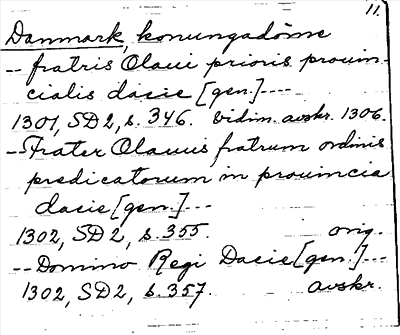 11.
Danmark, konungadöme
-- fratris Olaui prioris prouin-
cialis dacie [gen.] ----
1301, SD2, s. 346. vidim. avskr. 1306.
- Frater Olauus fratrum ordinis
predicatorum in prouincia
dacie [gen.] ---
1302, SD2, s. 355. orig.
-- Domino Regi Dacie [gen.] ---
1302, SD2, s. 357. avskr.